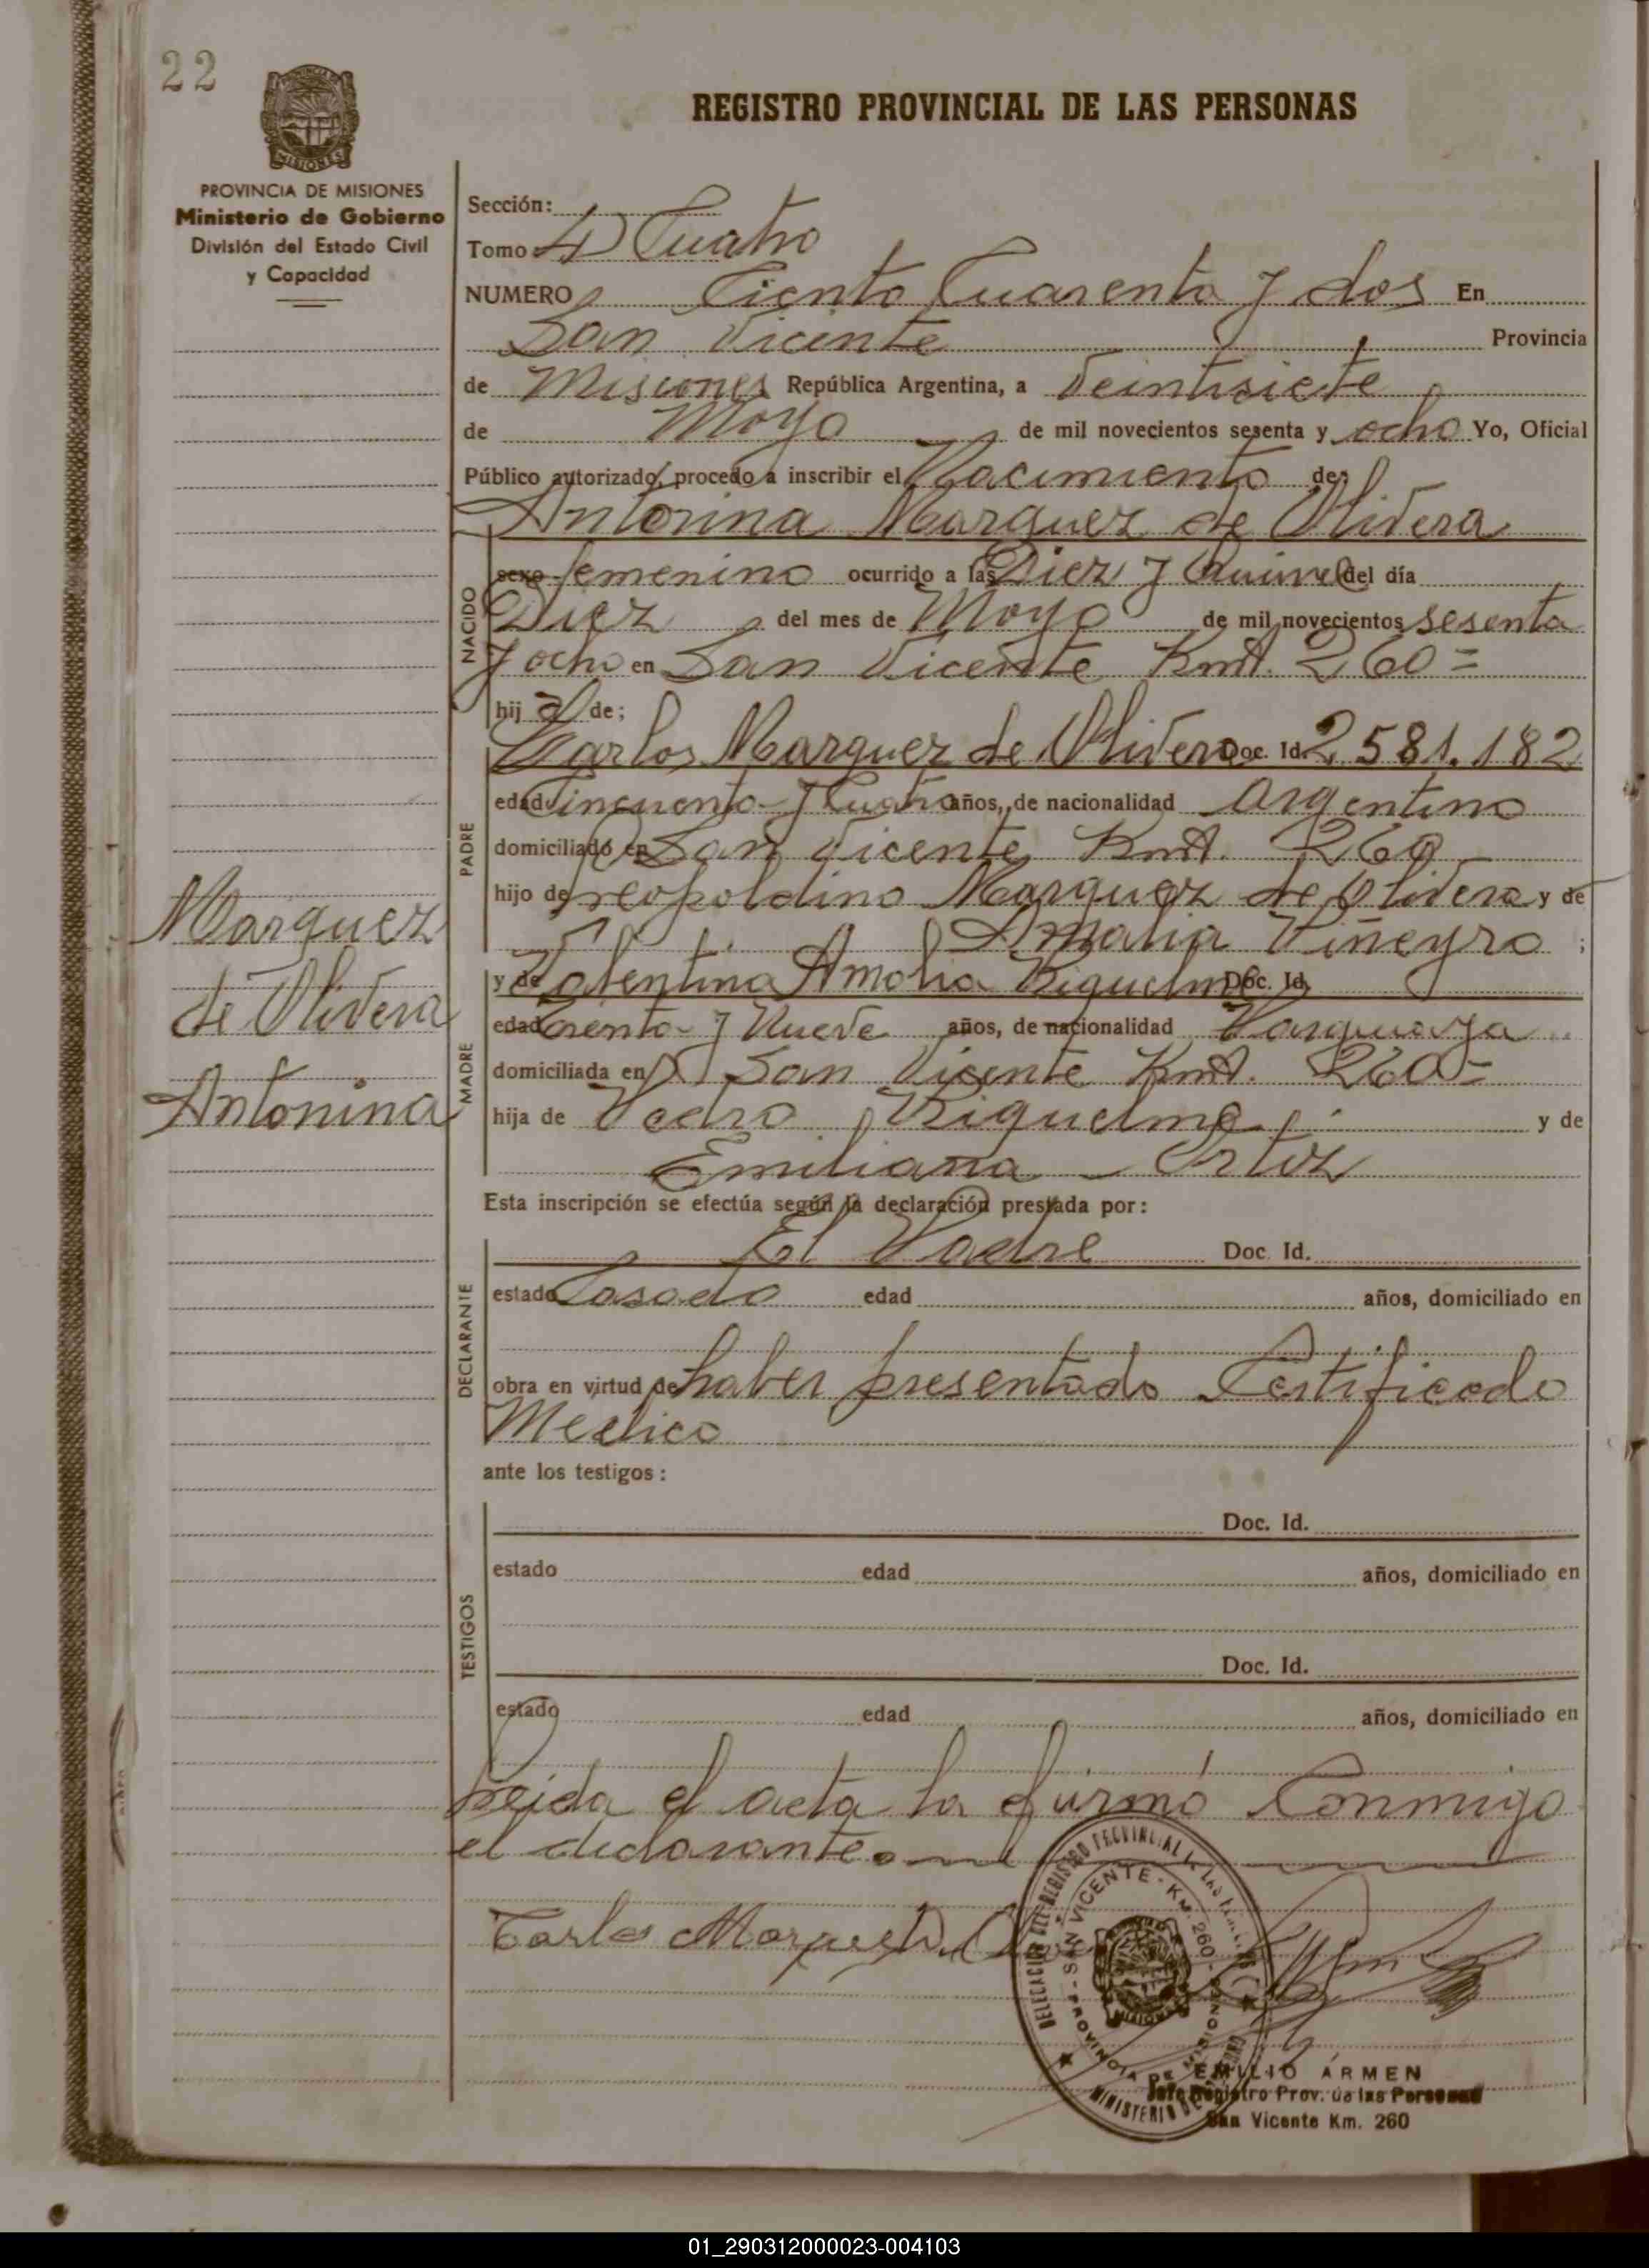 22
REGISTRO PROVINCIAL DE LAS PERSONAS
MISIONES
PROVINCIA DE MISIONES
Ministerio de Gobierno
División del Estado Civil
y Capacidad
Sección:
Tomo 4 Cuatro
NUMERO Ciento Cuarenta y dos En
San Vicente Provincia
de Misiones República Argentina, a Veintisiete
de Mayo de mil novecientos sesenta y ocho Yo, Oficial
Público autorizado, procedo a inscribir el Nacimiento de
Antonina Marquez de Olivera
NACIDO
sexo femenino ocurrido a las Diez y Quince del día
Diez del mes de Mayo de mil novecientos sesenta
y ocho en San Vicente Kmt. 260=
hij a de;
PADRE
Carlos Marquez de Olivera Doc. Id. 2.581.182
edad Cincuenta y Cuatro años, de nacionalidad Argentino
domiciliado en San Vicente Kmt. 260
hijo de Leopoldino Marquez de Olivera y de
Amalia Viñeyro ;
MADRE
y de Valentina Amalia Riquelme Doc. Id.
edad Treinta y Nueve años, de nacionalidad Paraguaya
domiciliada en San Vicente Kmt. 260=
hija de Pedro Riquelme y de
Emiliana Ortiz
Marquez
de Olivera
Antonina
Esta inscripción se efectúa según la declaración prestada por:
DECLARANTE
El Padre Doc. Id.
estado Casado edad años, domiciliado en
obra en virtud de haber presentado Certificado
Medico
ante los testigos:
TESTIGOS
Doc. Id.
estado edad años, domiciliado en
Doc. Id.
estado edad años, domiciliado en
Leida el acta la firmó Conmigo
el declarante.
Carlos Marquez D.
SAN VICENTE - Km. 260 - PROVINCIA DE MISIONES
EMILIO ARMEN
Jefe Registro Prov. de las Personas
San Vicente Km. 260
01_290312000023-004103